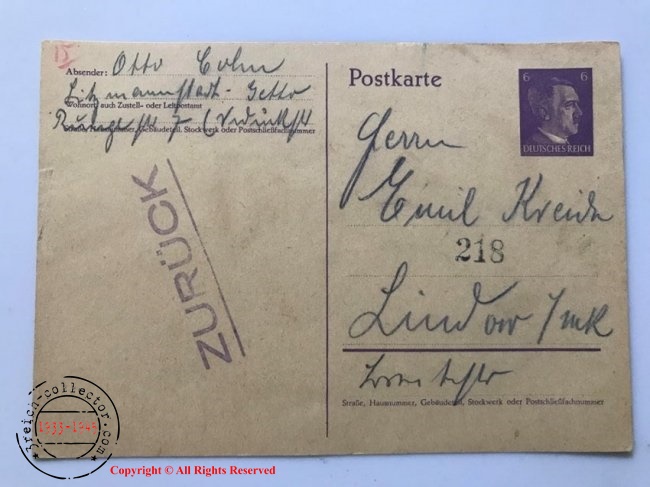 15
Absender: Otto Cohn
Litzmannstadt - Getto
Wohnort, auch Zustell- oder Leitpostamt
7
Straße, Hausnummer, Gebäudeteil, Stockwerk oder Postschließfachnummer
ZURÜCK
Postkarte
6 6
DEUTSCHES REICH
Herrn
Emil
218
Lindow /
Straße, Hausnummer, Gebäudeteil, Stockwerk oder Postschließfachnummer
3reich-collector.com
1933-1945
Copyright © All Rights Reserved